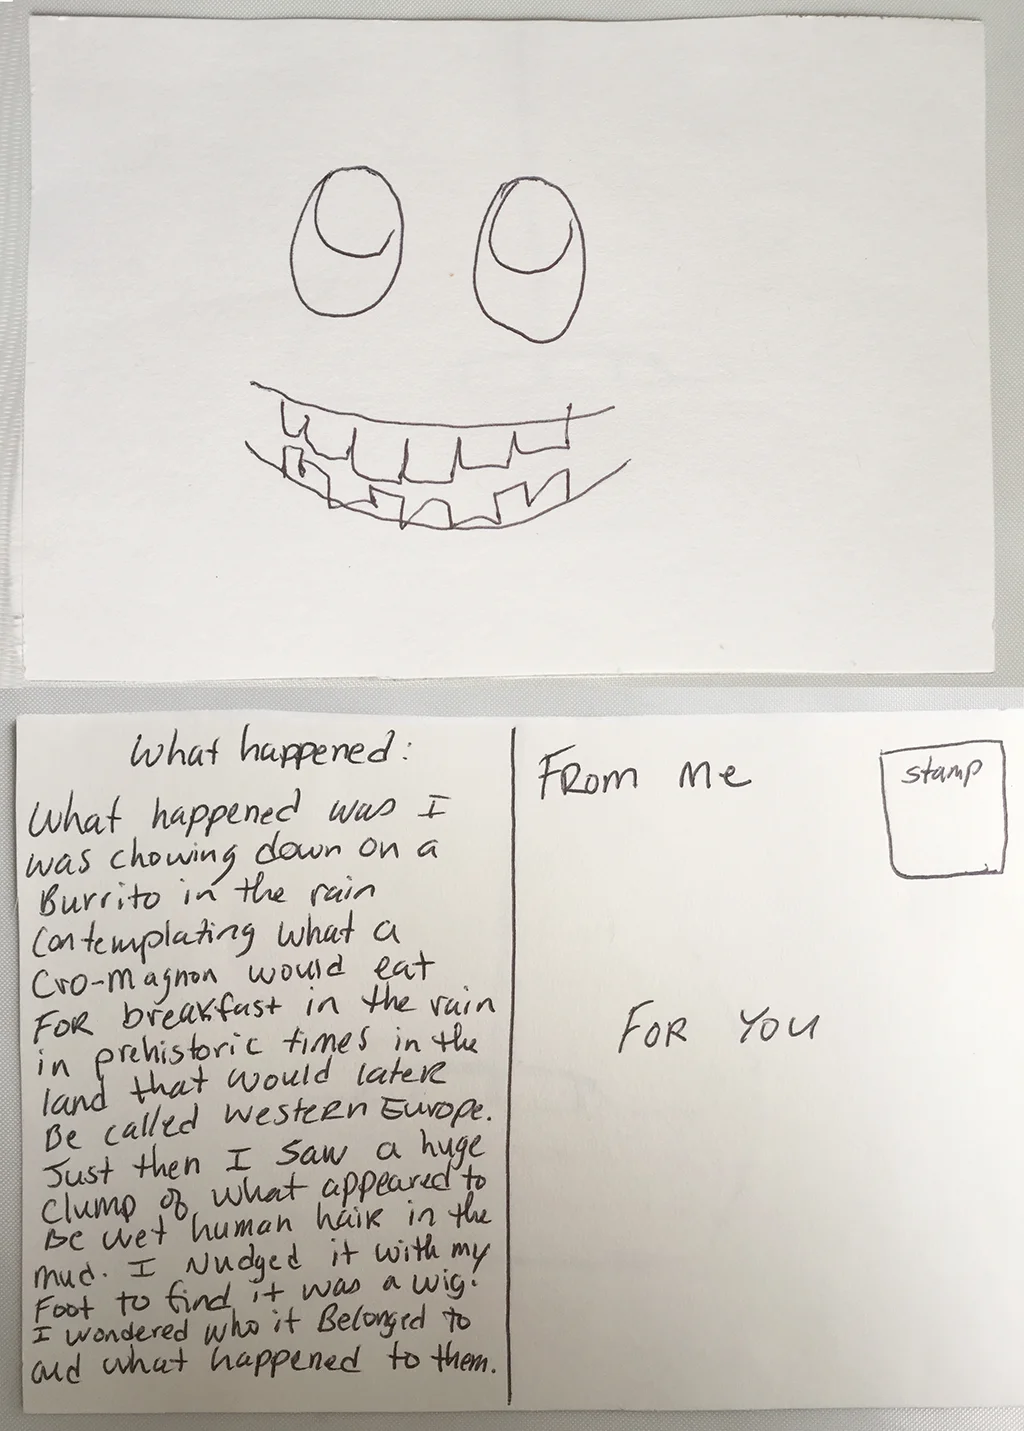 What happened:
What happened was I
was chowing down on a
Burrito in the rain
Contemplating what a
Cro-Magnon would eat
FOR breakfast in the rain
in prehistoric times in the
land that would later
Be called Western Europe.
Just then I saw a huge
clump of what appeared to
Be wet human hair in the
mud. I Nudged it with my
Foot to find it was a wig.
I wondered who it Belonged to
and what happened to them.
FROM Me
stamp
FOR YOU